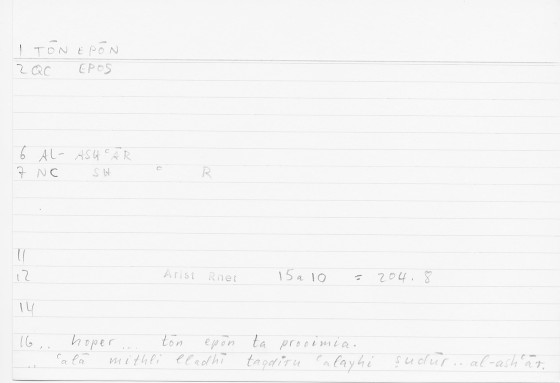 1 TŌN EPŌN
2 QC EPOS
6 AL- ASHᶜĀR
7 NC SH ᶜ R
11
12 Arist Rhet 15a10 = 204.8
14
16 .. hoper ... tōn epōn ta prooimia.
.. ᶜalā mithli lladhī ᶜalayhi ṣudūr ... al-ashᶜār.